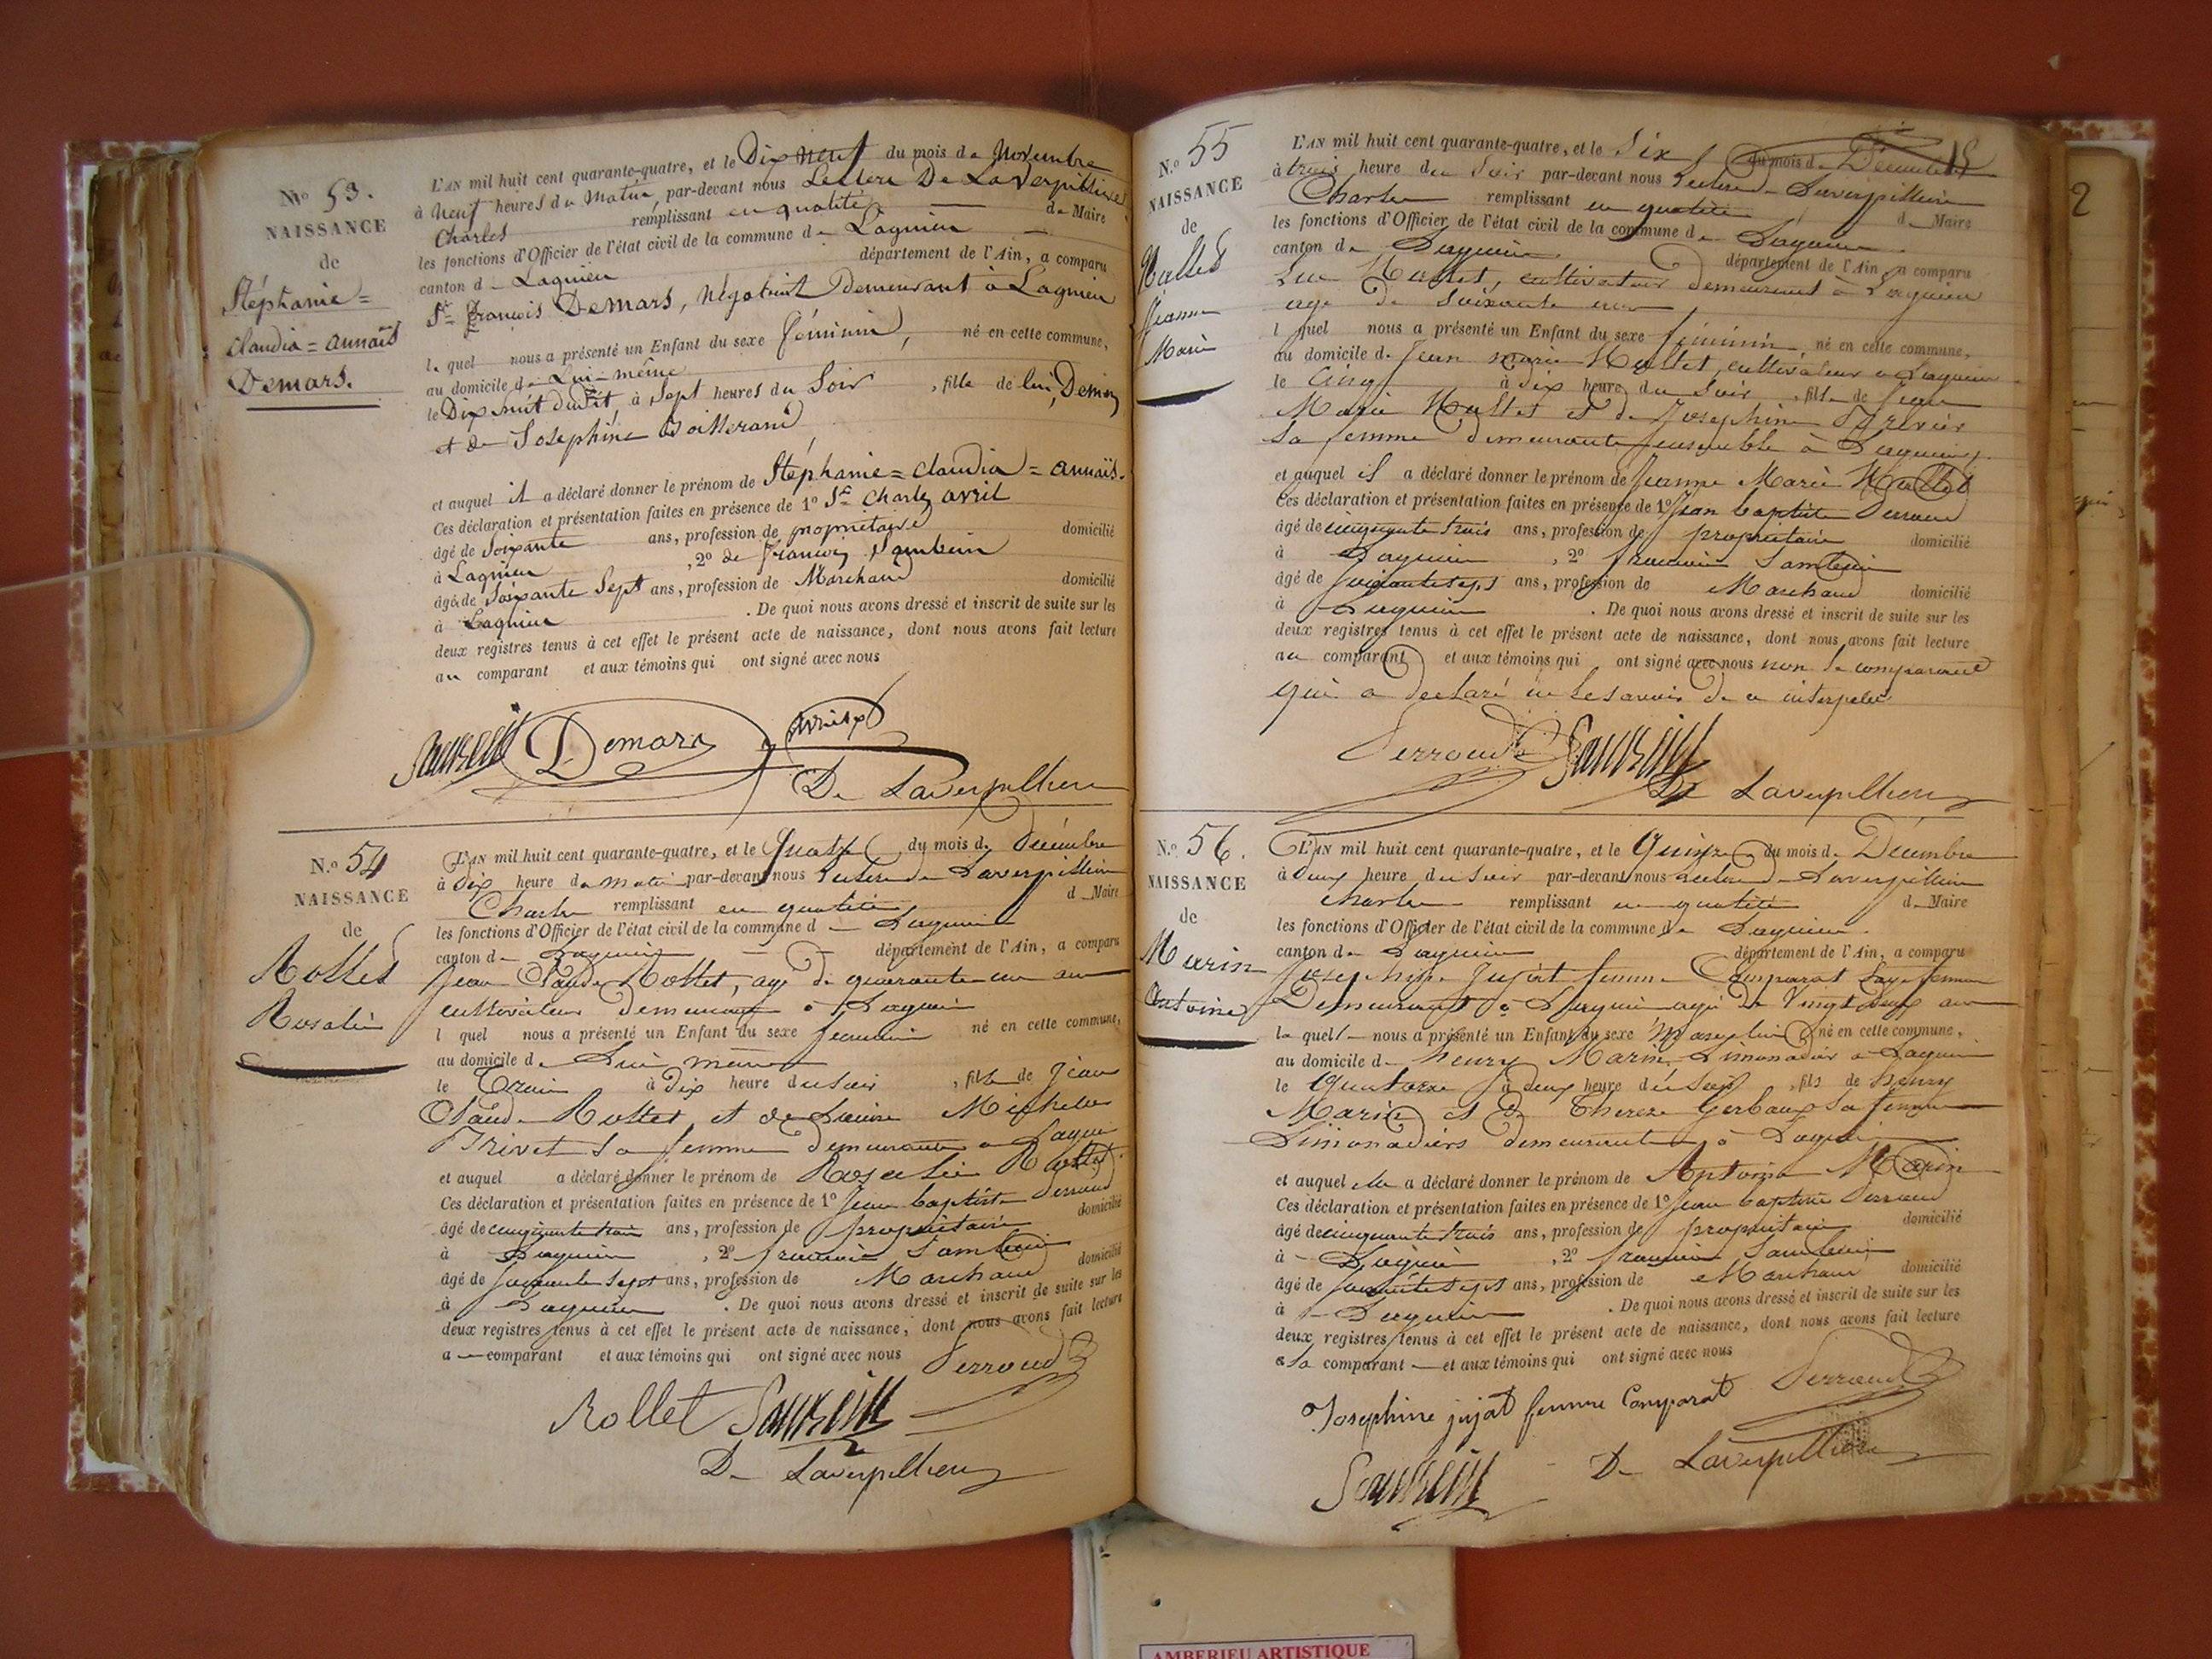 N.º 53.
NAISSANCE
de
Stéphanie =
Claudia = annaïs
Demars.
L'AN mil huit cent quarante-quatre, et le Dix neuf du mois de Novembre
à Neuf heures du Matin, par-devant nous Leclerc De Laverpillière
Charles remplissant en qualité de Maire
les fonctions d'Officier de l'état civil de la commune de Lagnieu
canton de Lagnieu département de l'Ain, a comparu
Sr. François Demars, Négotient Demeurant à Lagnieu
le quel nous a présenté un Enfant du sexe féminin, né en cette commune,
au domicile de Lui-même
le Dix huit dudit, à Sept heures du Soir, fille de lui, Demars
et de Josephine
et auquel il a déclaré donner le prénom de Stéphanie = Claudia = annaïs.
Ces déclaration et présentation faites en présence de 1º Sr. Charles avril
âgé de Soixante ans, profession de propriétaire domicilié
à Lagnieu, 2º de François Sambein
âgé de Soixante Sept ans, profession de Marchand domicilié
à Lagnieu. De quoi nous avons dressé et inscrit de suite sur les
deux registres tenus à cet effet le présent acte de naissance, dont nous avons fait lecture
au comparant et aux témoins qui ont signé avec nous
Demars
De Laverpilliere
N.º 54
NAISSANCE
de
Rollet
Rosalie
L'AN mil huit cent quarante-quatre, et le Quatre du mois de Décembre
à Dix heure du matin par-devant nous Leclerc de Laverpillière
Charles remplissant en qualité de Maire
les fonctions d'Officier de l'état civil de la commune de Lagnieu
canton de Lagnieu département de l'Ain, a comparu
Jean Claude Rollet, agé de quarante un ans
cultivateur demeurant à Lagnieu
l quel nous a présenté un Enfant du sexe feminin né en cette commune,
au domicile de Lui meme
le Trois à dix heure du soir, fille de Jean
Claude Rollet et de Louise Michelle
Trivet sa femme demeurants à Lagnieu
et auquel a déclaré donner le prénom de Rosalie Rollet
Ces déclaration et présentation faites en présence de 1º Jean baptiste Perroud
âgé de cinquante trois ans, profession de propriétaire domicilié
à Lagnieu, 2º francois Sambein
âgé de soixante sept ans, profession de Marchand domicilié
à Lagnieu. De quoi nous avons dressé et inscrit de suite sur les
deux registres tenus à cet effet le présent acte de naissance, dont nous avons fait lecture
a comparant et aux témoins qui ont signé avec nous Perroud
Rollet
De Laverpilliere
N.º 55
NAISSANCE
de
Jeanne
Marie
L'AN mil huit cent quarante-quatre, et le Six du mois de Décembre
à trois heure du Soir par-devant nous Leclerc de Laverpillière
Charles remplissant en qualité de Maire
les fonctions d'Officier de l'état civil de la commune de Lagnieu
canton de Lagnieu département de l'Ain, a comparu
cultivateur demeurant à Lagnieu
agé de soixante ans
l quel nous a présenté un Enfant du sexe féminin, né en cette commune,
au domicile de Jean marie cultivateur a Lagnieu
le Cinq à dix heure du Soir, fille de Jean
Marie et de Josephine
sa femme demeurants ensemble à Lagnieu
et auquel il a déclaré donner le prénom de Jeanne Marie
Ces déclaration et présentation faites en présence de 1º Jean baptiste Perroud
âgé de cinquante trois ans, profession de propriétaire domicilié
à Lagnieu, 2º francois Sambein
âgé de soixante sept ans, profession de Marchand domicilié
à Lagnieu. De quoi nous avons dressé et inscrit de suite sur les
deux registres tenus à cet effet le présent acte de naissance, dont nous avons fait lecture
au comparant et aux témoins qui ont signé avec nous non le comparant
qui a declaré ne le savoir de ce interpelé
Perroud
De Laverpilliere
N.º 56.
NAISSANCE
de
Marin
Antoine
L'AN mil huit cent quarante-quatre, et le Quinze du mois de Décembre
à deux heure du soir par-devant nous Leclerc de Laverpillière
Charles remplissant en qualité de Maire
les fonctions d'Officier de l'état civil de la commune de Lagnieu
canton de Lagnieu département de l'Ain, a comparu
Josephine Jujat femme Comparat Sage femme
Demeurant à Lagnieu agé de Vingt deux ans
la quelle nous a présenté un Enfant du sexe Masculin né en cette commune,
au domicile de henry Marin Limonadier à Lagnieu
le Quatorze à deux heure du soir, fils de henry
Marin et de Thereze Gerbaux sa femme
Limonadiers demeurant à Lagnieu
et auquel elle a déclaré donner le prénom de Antoine Marin
Ces déclaration et présentation faites en présence de 1º Jean baptiste Perroud
âgé de cinquante trois ans, profession de propriétaire domicilié
à Lagnieu, 2º francois Sambein
âgé de soixante sept ans, profession de Marchand domicilié
à Lagnieu. De quoi nous avons dressé et inscrit de suite sur les
deux registres tenus à cet effet le présent acte de naissance, dont nous avons fait lecture
a la comparant et aux témoins qui ont signé avec nous
Perroud
Josephine jujat femme Comparat
De Laverpilliere
2
AMBERIEU ARTISTIQUE